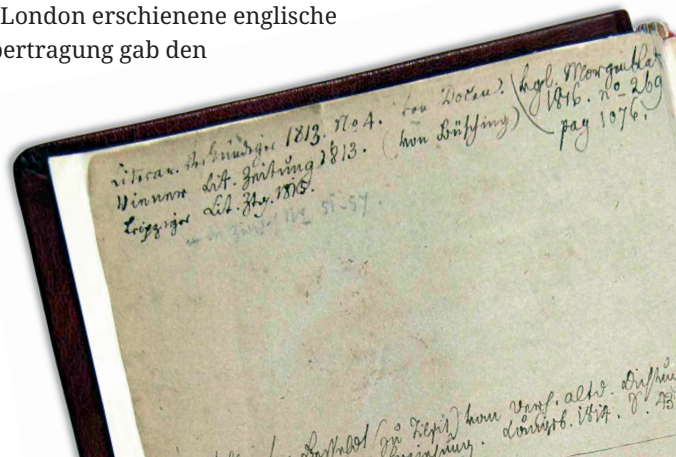 London erschienene englische
bertragung gab den
Literar. Verkündiger 1813. No 4. von Docen.
Wiener Lit. Zeitung 1813. (von Büsching)
Leipziger Lit. Ztg. 1815.
No 51-57.
vgl. Morgenblatt
1816. no 269
pag 1076.
(zu Tilsit) vom Verf. altd.
Königsb. 1814. S.